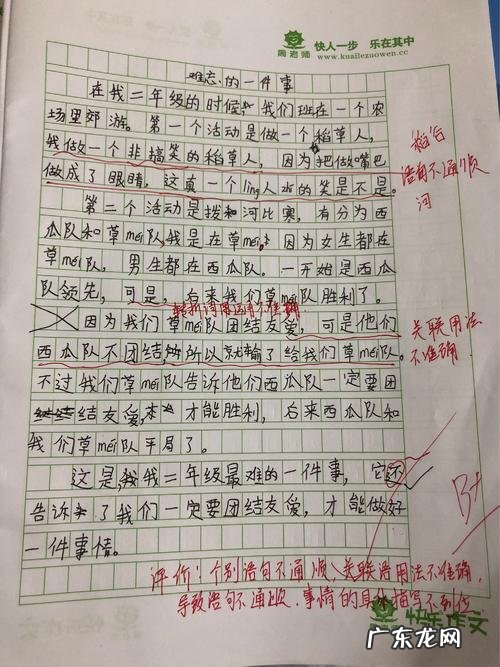 周老师 快人一步 乐在其中
www.kuailezuowen.cc
难忘的一件事
在我二年级的时候,我们班在一个农
场里郊游。第一个活动是做一个稻草人,
我做一个非搞笑的稻草人,因为把做嘴巴
做成了眼睛,这真一个ling人的笑是不是。
语句不通顺
第二个活动是拨河比寒,有分为西
河
瓜队和草mei队,我是在草mei,因为女生都在
草mei队,男生都在西瓜队。一开始是西瓜
队领先,可是,后来我们草mei队胜利了。
转折词用不准确
因为我们草mei队团结友爱,可是他们
关联用法
西瓜队不团结,所以就输了给我们草mei队。
不准确
不过我们草mei队告诉他们西瓜队一定要团
结友爱,才能胜利,后来西瓜队和
我们草mei队平局了。
这是我二年级最难的一件事,它还
告诉了我们一定要团结友爱,才能做好
B+
一件事情。
评价:个别语句不通顺,关联语用法不准确,
导致语句不通,事情的具体描写不到位
快乐作文
广东龙网